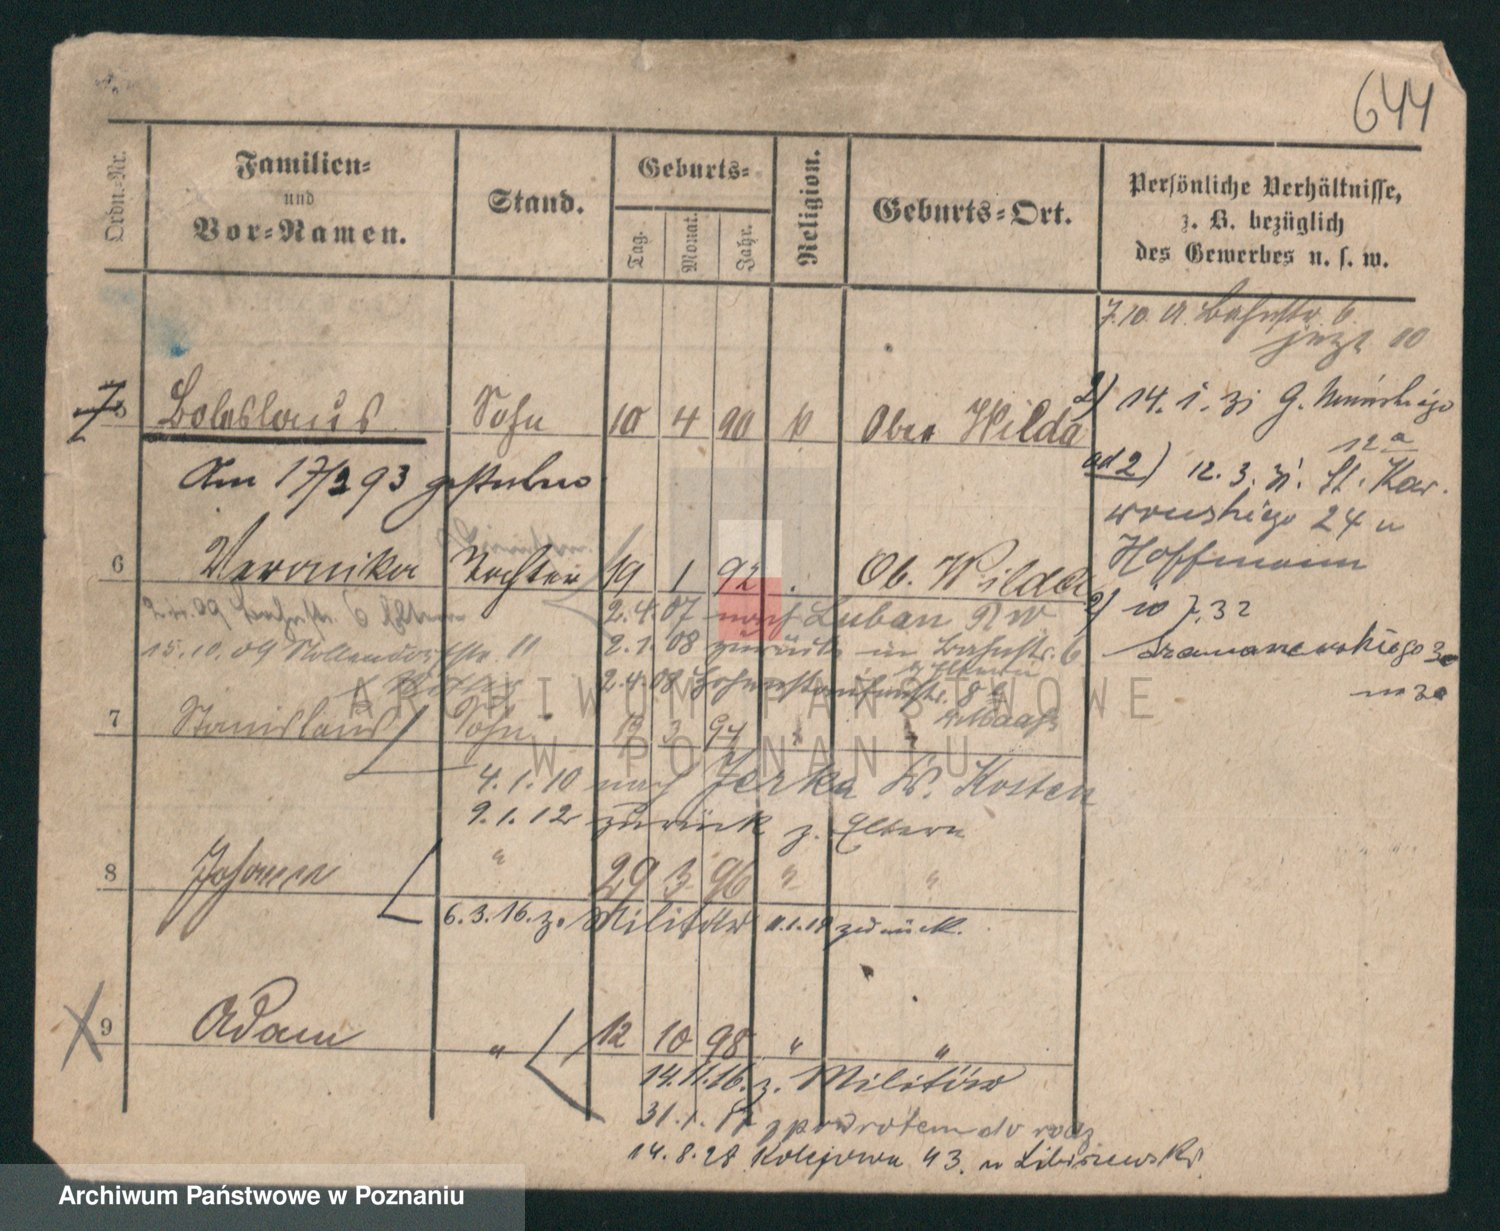 644
Ordn.-Nr.
Familien-
und
Vor-Namen.
Stand.
Geburts-
Tag.
Monat.
Jahr.
Religion.
Geburts-Ort.
Persönliche Verhältnisse,
z. B. bezüglich
des Gewerbes u. s. w.
7.10.11. Bahnstr. 6
jezt 10
5 Boleslaus Sohn 10 4 90 k Ober Wilda
2) 14.1.31 G.
12a
Am 17/2 93 gestorben
ad 2) 12.3.31. St. Kar-
wowskiego 24 u
Hoffmann
6 Veronika Tochter 19 1 92 Ob. Wilda
Bahnstr. 6 Eltern
2.4.07 nach Luban PW
2) w 7.32
15.10.09 Nollendorfstr. 11
2.1.08 zurück in Bahnstr. 6
Szamarzewskiego 30
m 30
2.4.08 Hohenstaufenstr. 8
z. Eltern
b Maass
7 Stanislaus Sohn 13 3 94
4.1.10 nach Jerka K. Kosten
9.1.12 zurück z. Eltern
8 Johann " 29 3 96 " "
6.3.16. z. Militär 11.1.19 zurück.
9 Adam " 12 10 98 " "
14.11.16. z. Militär
31.1. z powrotem do rodz
14.8.28 Kolejowa 43. u Libiszewski
ARCHIWUM PAŃSTWOWE
W POZNANIU
Archiwum Państwowe w Poznaniu